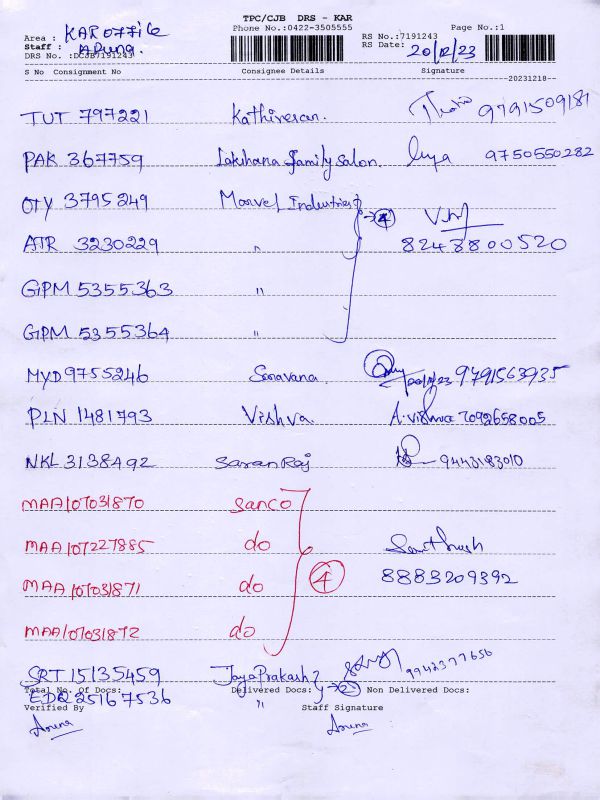 TPC/CJB DRS - KAR
Phone No.:0422-3505555 Page No.:1
Area : KAR OFFICE RS No.:7191243
Staff : Aruna. RS Date: 20/12/23
DRS No. :DCJB7191243
S No Consignment No Consignee Details Signature
20231218
TUT 797221 Kathiresan. 9791509181
PAK 367759 Lakshana Family Salon. 9750550282
OTY 3795249 Marvel Industries 4
ATR 3230229 " 8248800520
GPM 5355363 "
GPM 5355364 "
MYD 9755246 Saravana. 9791563935
PLN 1481793 Vishva. A. Vishva 7092658005
NKL 3138492 Saran Raj 9443183010
MAA107031870 Sanco
MAA107227885 do Santhosh
MAA107031871 do 4 8883209392
MAA107031872 do
SRT 15135459 Jaya Prakash 2 9942377656
Total No. Of Docs: Delivered Docs: Non Delivered Docs:
EDQ 25167536 "
Verified By Staff Signature
Aruna Aruna